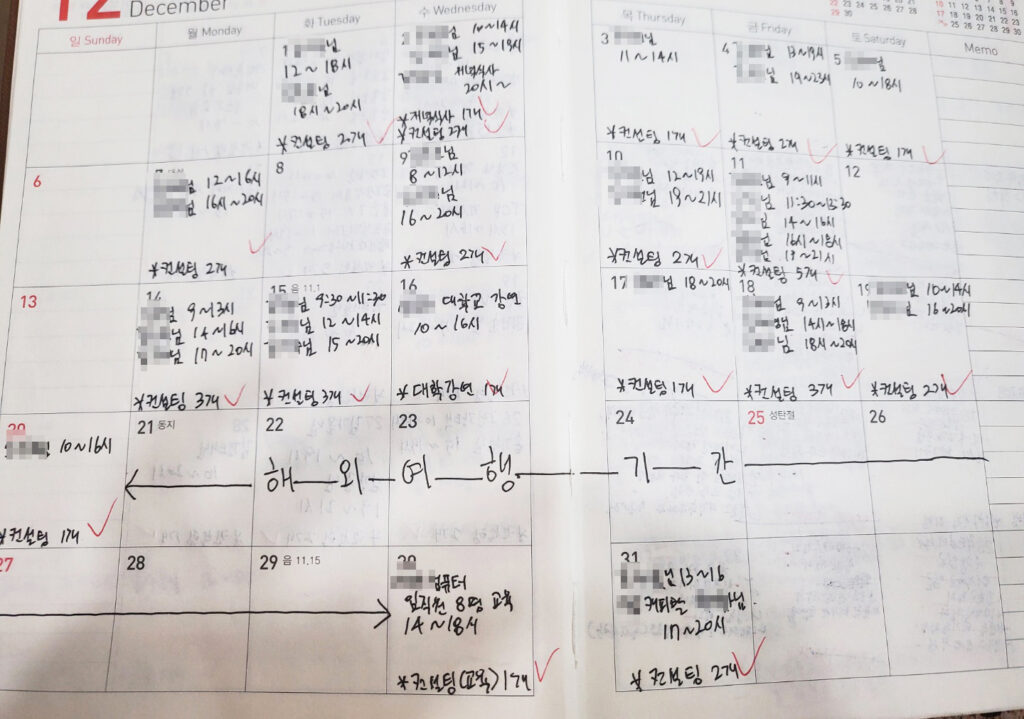 12 December
일 Sunday
월 Monday
화 Tuesday
수 Wednesday
목 Thursday
금 Friday
토 Saturday
Memo
1 님
12~18시
님
18시~20시
*컨설팅 2개
2 10~14시
15~19시
저녁식사
20시~
*저녁식사 1개
*컨설팅 2개
3 님
11~14시
*컨설팅 1개
4 13~19시
님 19~23시
*컨설팅 2개
5 님
10~18시
*컨설팅 1개
6
7
님 12~16시
님 16시~20시
*컨설팅 2개
8
9 님
8~12시
님
16~20시
*컨설팅 2개
10
님 12~19시
님 19~21시
*컨설팅 2개
11
님 9~11시
님 11:30~13:30
님 14~16시
님 16시~18시
님 19~21시
*컨설팅 5개
12
13
님 9~13시
님 14~16시
님 17~20시
*컨설팅 3개
15 음 11.1
님 9:30~11:30
님 12~14시
님 15~20시
*컨설팅 3개
16
대학교 강연
10~16시
*대학강연 1개
17 님 18~20시
*컨설팅 1개
18
님 9~13시
님 14시~18시
님 18시~20시
*컨설팅 3개
19 님 10~14시
님 16~20시
*컨설팅 2개
20
님 10~16시
*컨설팅 1개
21 동지
22
23
24
25 성탄절
26
해외여행기간
27
28
29 음 11.15
30
컴퓨터
임직원 8명 교육
14~18시
*컨설팅(교육) 1개
31
님 13~16
캐피탈 님
17~20시
*컨설팅 2개